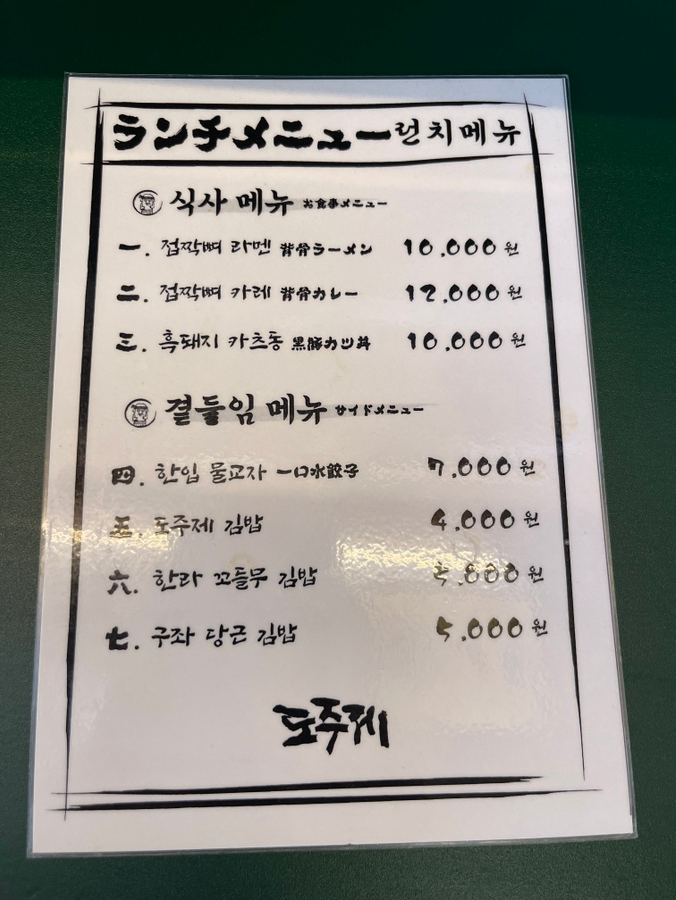 ランチメニュー런치메뉴
식사 메뉴 お食事メニュー
一. 접짝뼈 라멘 背骨ラーメン 10,000원
二. 접짝뼈 카레 背骨カレー 12,000원
三. 흑돼지 카츠동 黒豚カツ丼 10,000원
곁들임 메뉴 サイドメニュー
四. 한입 물교자 一口水餃子 7,000원
五. 도주제 김밥 4,000원
六. 한라 꼬들무 김밥 5,000원
七. 구좌 당근 김밥 5,000원
도주제